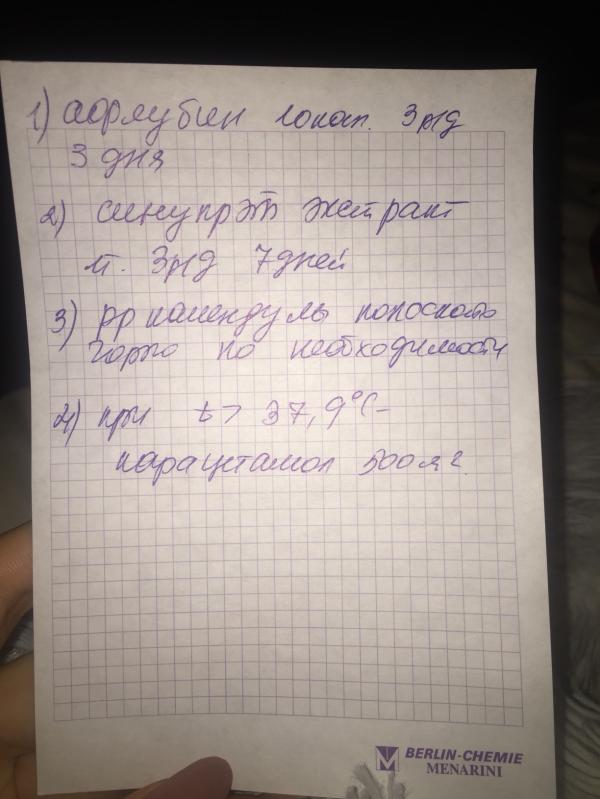 1) афлубин 10кап. 3р/д
3 дня
2) синупрэт экстракт
1т. 3р/д 7 дней
3) рр календулы полоскать
горло по необходимости
4) при t > 37,9°С -
парацетамол 500 мг.
BERLIN-CHEMIE
MENARINI